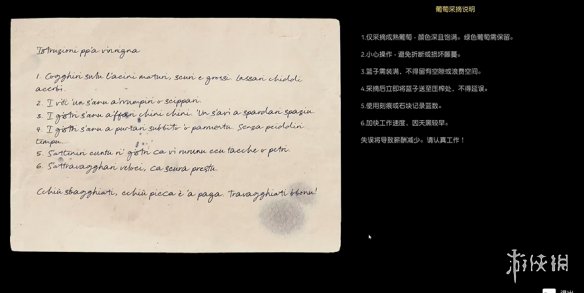 Istruzioni ppa vinnigna
1. Cogghiri sulu l'acini maturi, scuri e grossi. Lassari chiddi
acerbi.
2. I viti 'un s'anu a rumpiri o scippari.
3. I gistri s'anu a chini chini. 'Un s'avi a spardari spaziu.
4. I gistri s'anu a purtari subbitu 'o parmentu. Senza perdiri
tempu.
5. cuntu ri gistri ca vi tacche o petri.
6. veloci, ca scura prestu.
Cchiù sbagghiati, cchiù picca è 'a paga. Travagghiati bbonu!
葡萄采摘说明
1.仅采摘成熟葡萄 - 颜色深且饱满。绿色葡萄需保留。
2.小心操作 - 避免折断或损坏藤蔓。
3.篮子需装满、不得留有空隙或浪费空间。
4.采摘后立即将篮子送至压榨处、不得延误。
5.使用刻痕或石块记录篮数。
6.加快工作速度、因天黑较早。
失误将导致薪酬减少。请认真工作！
游侠网
退出